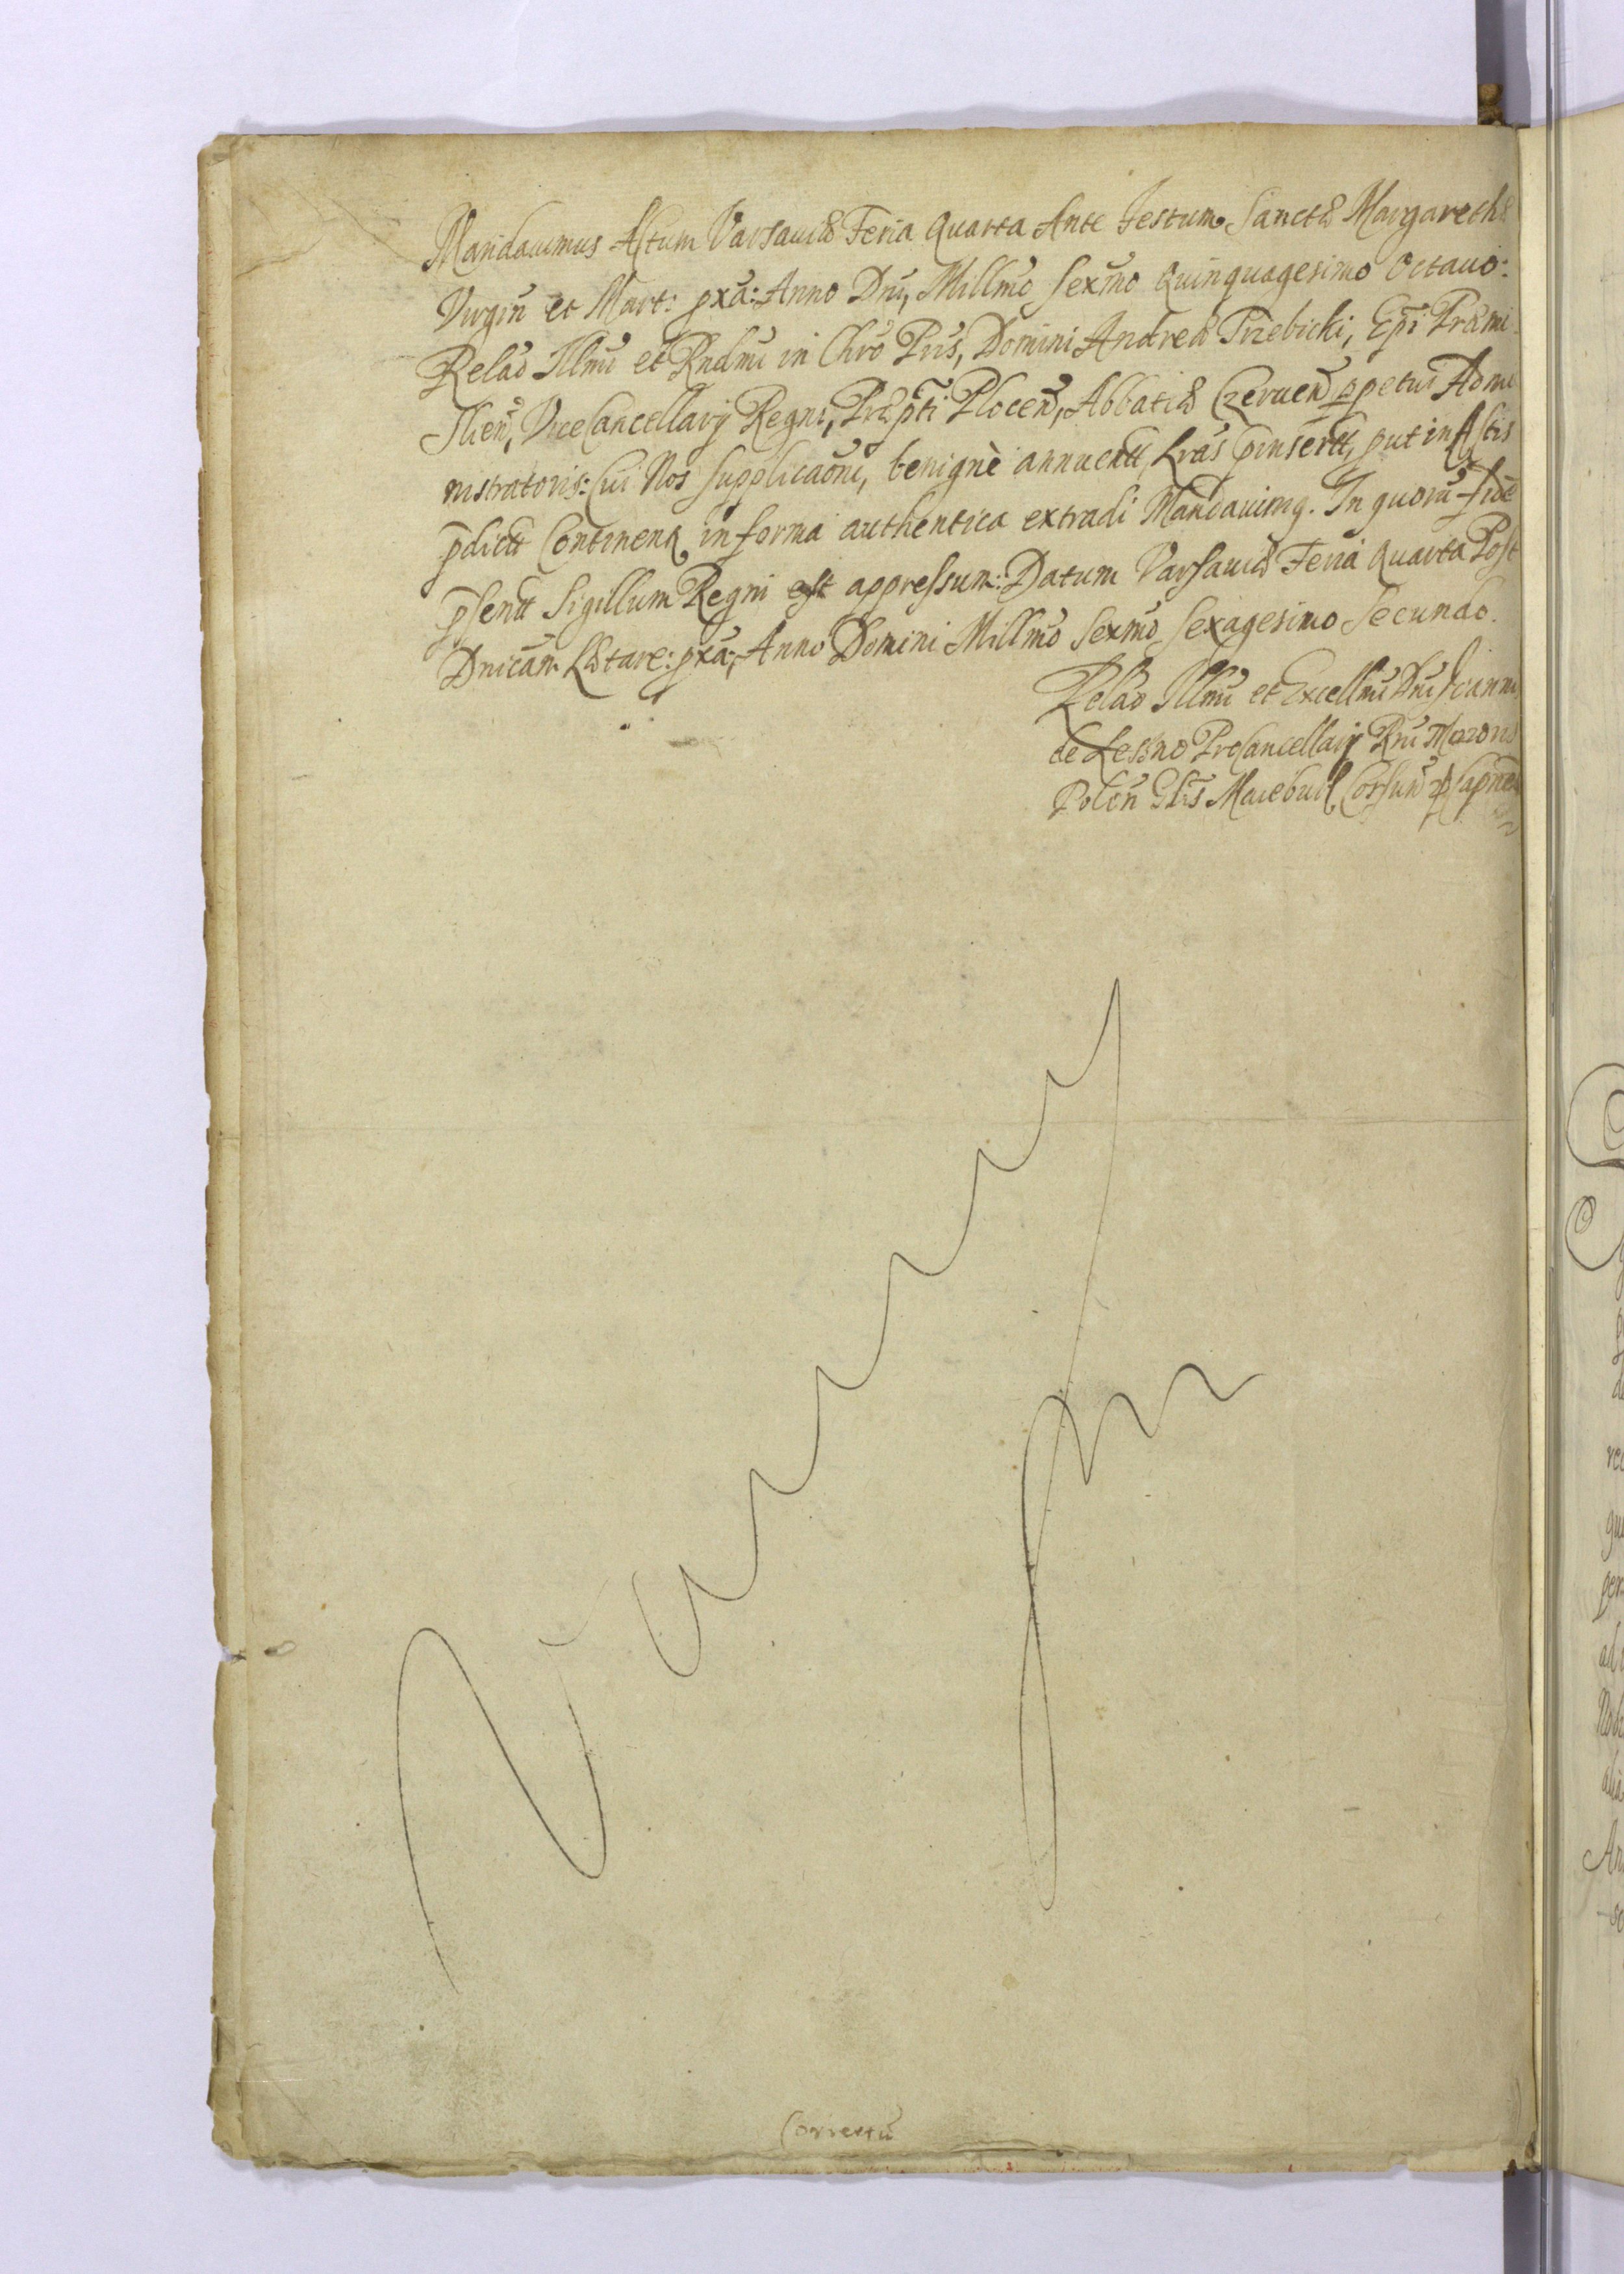 Mandauimus Actum Varsauiæ Feria Quarta Ante Festum Sanctæ Margarethæ
Virgin̄ et Mart: pxa: Anno Dni, Millmo Sexmo Quinquagesimo Octauo:
Relao Illmi et Rndmi in Chro Pris, Domini Andreæ Trzebicki, Epi Præmi-
slien̄, ViceCancellarij Regni, Præpti Plocen̄, Abbatiæ Czeruen̄ ppetui Admi
nistratoris: Cui Nos Supplicaoni, benignè annuentt Lras pinsertt, put in Actis
pdictt Continent in forma authentica extradi Mandauimq. In quoru fide
psentt Sigillum Regni est appressum: Datum Varsauiæ Feria Quarta Post
Dnicam Lætare: pxa: Anno Domini Millmo Sexmo Sexagesimo Secundo.
Relao Illmi et Excellmi Dni Joannis
de Leszno ProCancellarij Rni Maioris
Polon̄ Glis
Correctu